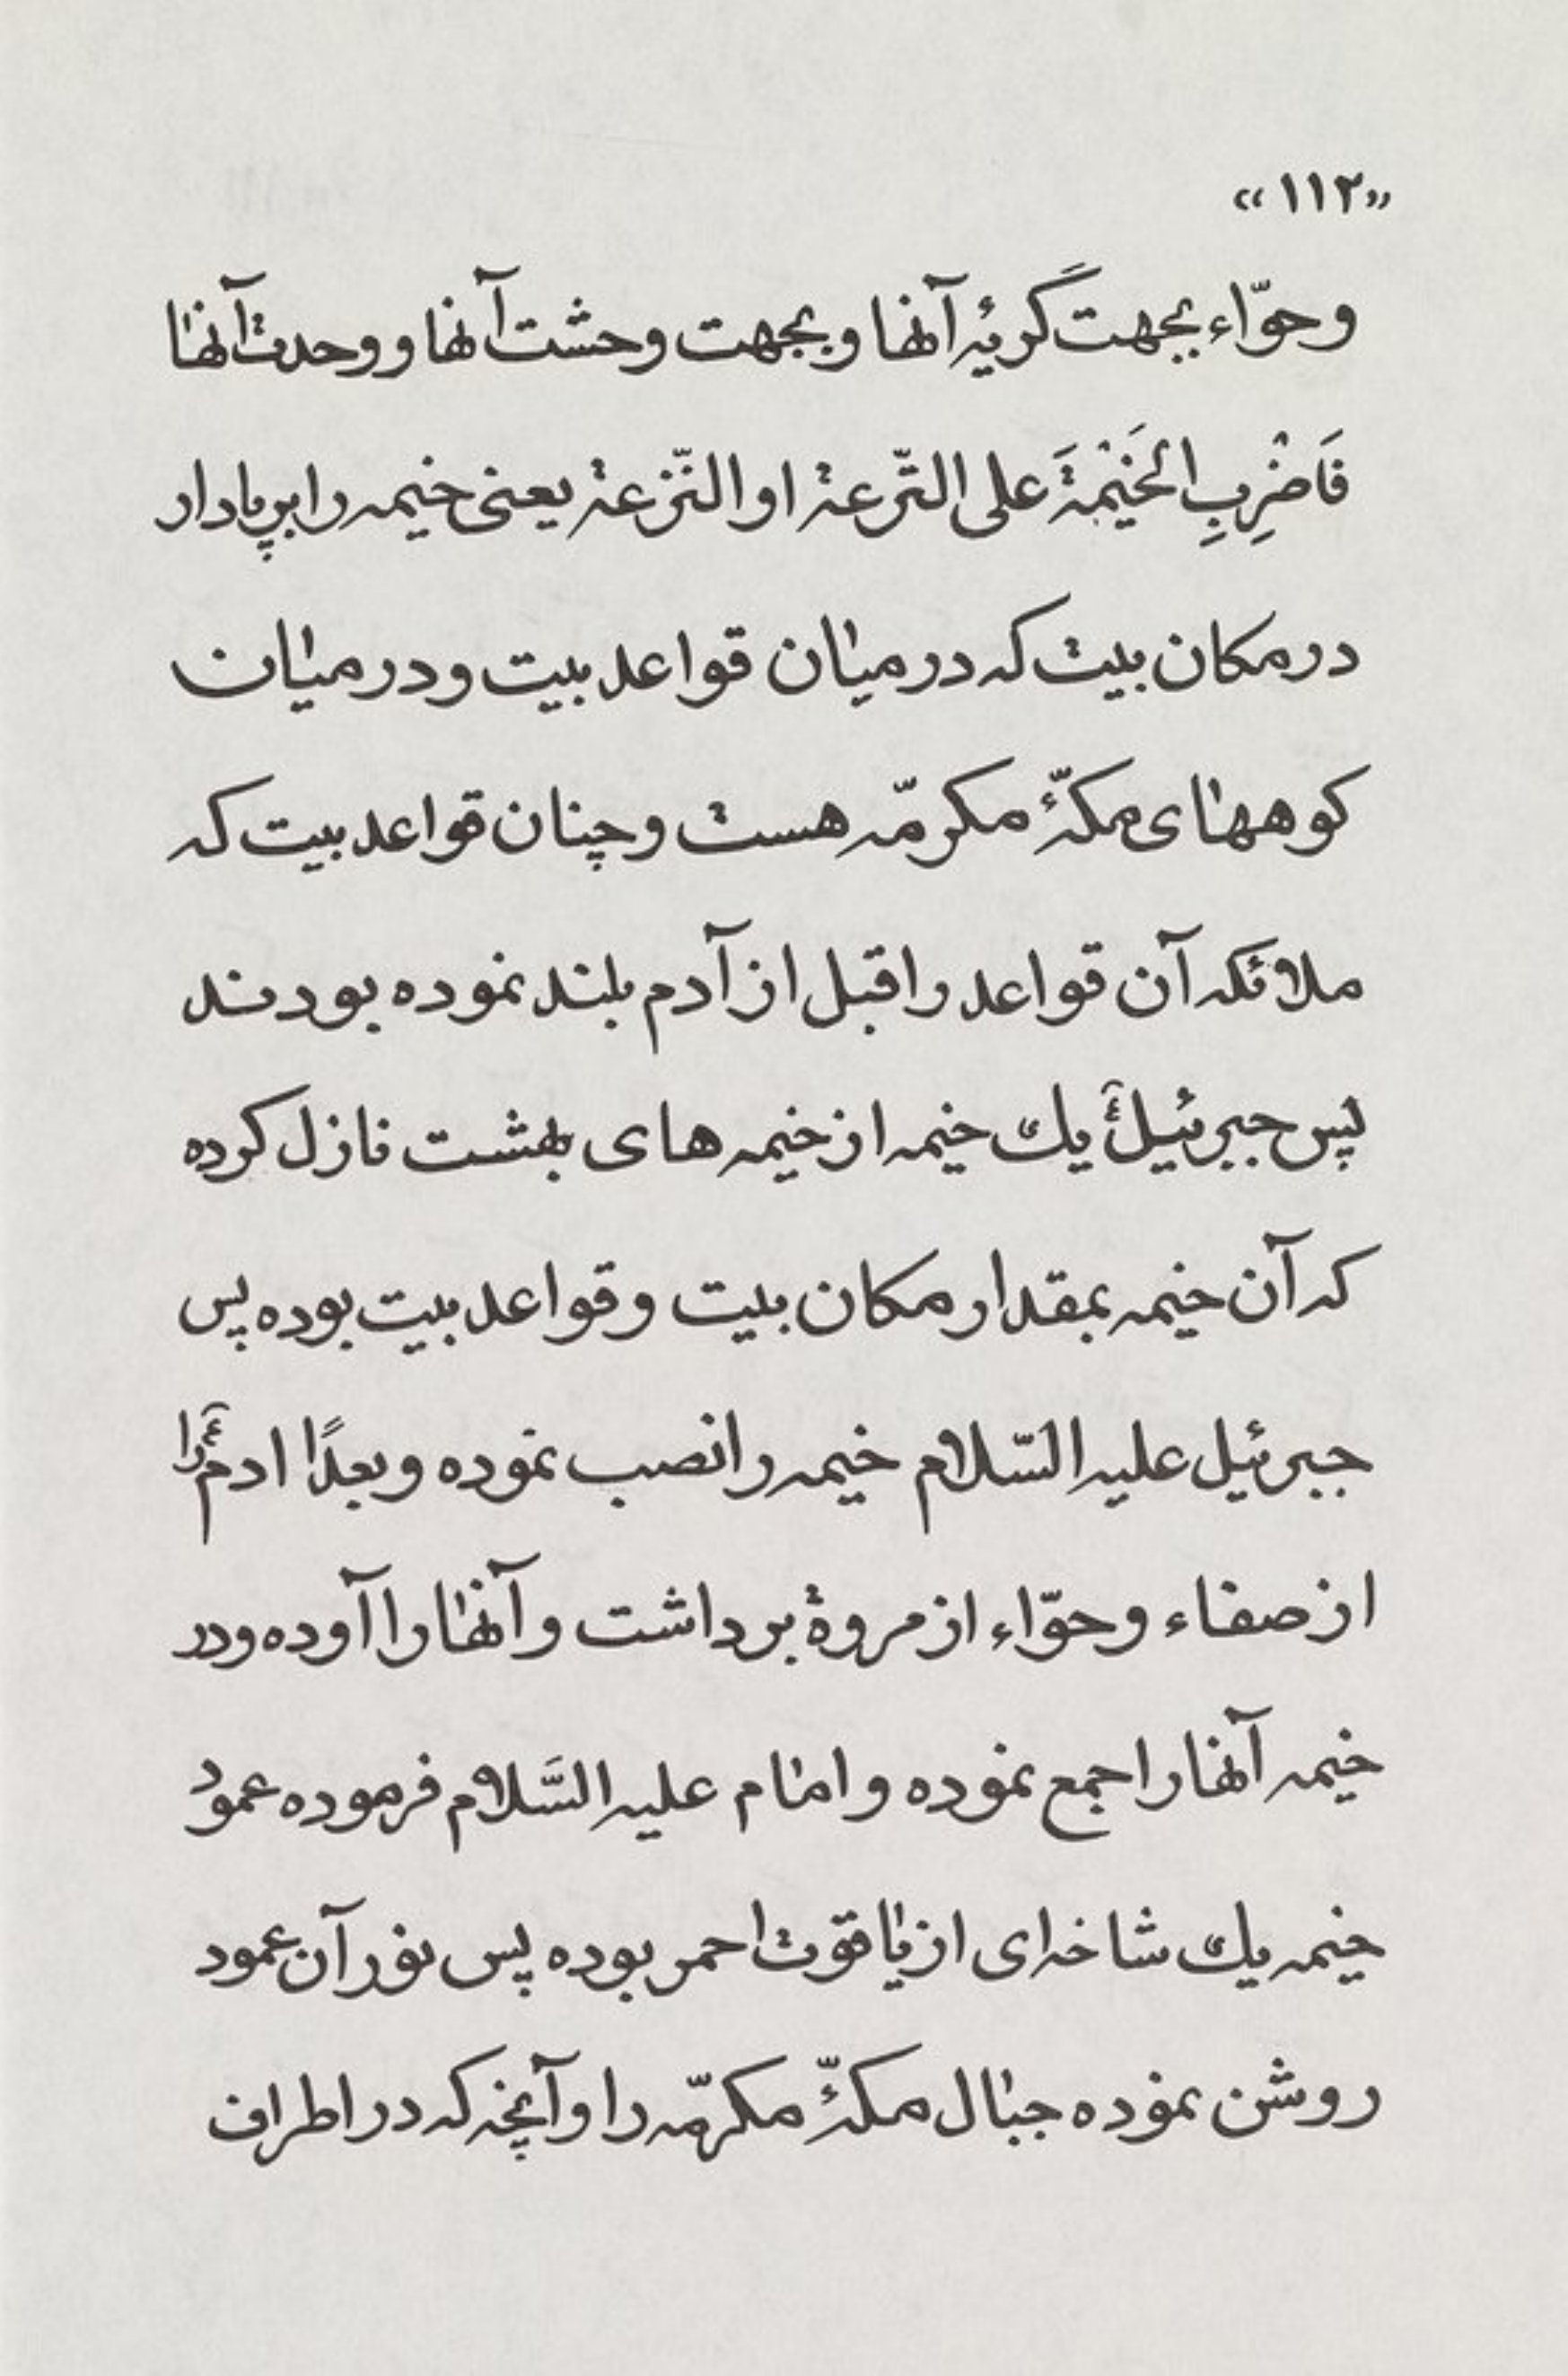 «۱۱۲»
وحوّاء بجهت گریهٔ آنها وبجهت وحشت آنها ووحدت آنها
فَاضْرِبِ الخَیْمَةَ علی التّرعة او النّزعة یعنی خیمه را برپا دار
در مکان بیت که در میان قواعد بیت و در میان
کوههای مکّهٔ مکرمّه هست وچنان قواعد بیت که
ملائکه آن قواعد را قبل از آدم بلند نموده بودند
پس جبرئیلؑ یك خیمه از خیمه های بهشت نازل کرده
که آن خیمه بمقدار مکان بیت وقواعد بیت بوده پس
جبرئیل علیه السّلام خیمه را نصب نموده وبعدًا ادمؑ را
از صفاء وحوّاء از مروة برداشت وآنها را آوده ودر
خیمه آنها را جمع نموده وامام علیه السَّلام فرموده عمود
خیمه یك شاخه ای از یاقوت احمر بوده پس نور آن عمود
روشن نموده جبال مکّهٔ مکرمّه را وآنچه که در اطراف